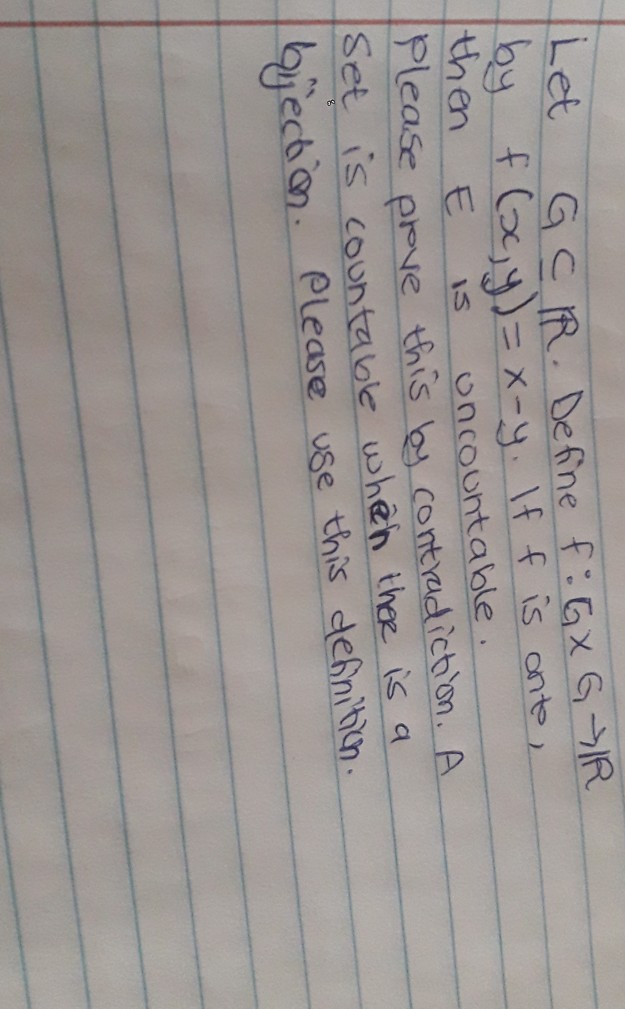 Let G ⊆ ℝ. Define f: G × G → ℝ
by f(x,y) = x-y. If f is onto,
then E is uncountable.
please prove this by contradiction. A
set is countable when there is a
bijection. Please use this definition.